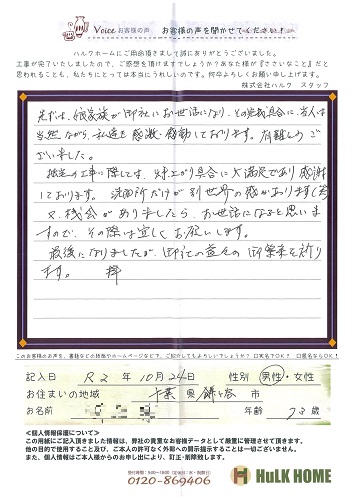 Voice お客様の声 お客様の声を聞かせてください!
ハルクホームにご用命頂きまして誠にありがとうございました。
工事が完了いたしましたので、ご感想を頂けますでしょうか?あなた様が『ささいなこと』だと
思われることも、私たちにとっては本当にうれしいのです。何卒よろしくお願い申し上げます。
株式会社ハルク スタッフ
先だは、娘家族が御社にお世話になり、その完成具合に当人は
当然ながら、私達も感激・感動しております。有難うご
ざいました。
工事に際しては、仕上がり具合に大満足であり感謝
しております。洗面所だけが別世界の感があります(笑
又、機会がありましたら、お世話になると思いま
すので、その際は宜しくお願いします。
最後になりましたが、御社の益々の御繁栄を祈り
ます。 拝
このお客様のお声を、書籍などの諸物やホームページなどで、ご紹介してもよろしいでしょうか? 口実名でOK? 口匿名ならOK!
記入日 R2年10月24日 性別 男性・女性
お住まいの地域 千葉県鎌ヶ谷市
お名前 年齢 73歳
<個人情報保護について>
この用紙にご記入頂きました情報は、弊社の貴重なお客様データとして厳重に管理させて頂きます。
他の目的で使用すること及び、ご本人の許可なく外部への開示提示することは一切ございません。
また、個人情報はご本人様からのお申し出により、訂正・削除致します。
受付時間:9:00〜18:00(定休日:水・祝祭日)
0120-869406
HULK HOME